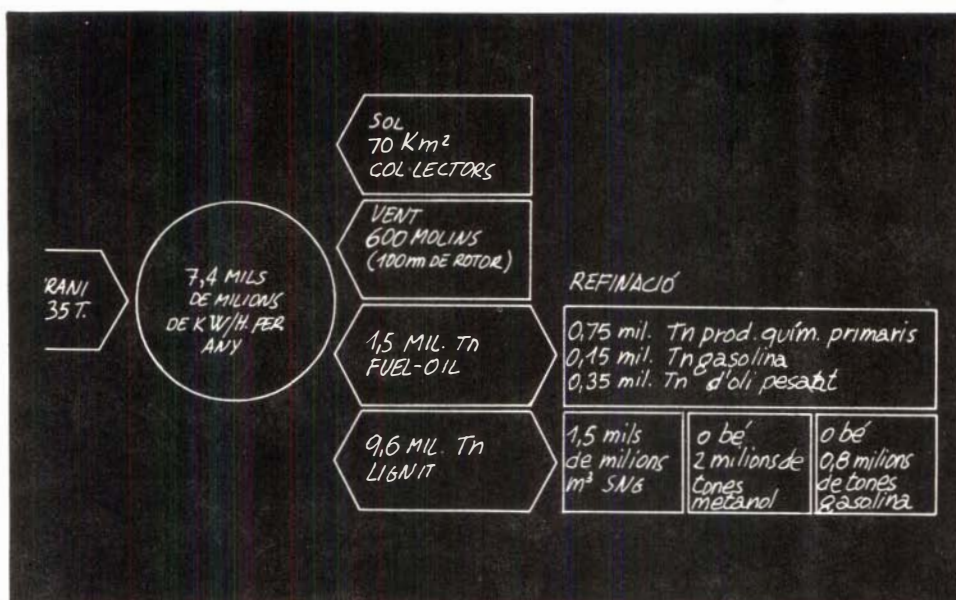 RANI
35 T.
7,4 MILS
DE MILIONS
DE KW/H. PER
ANY
SOL
70 Km²
COL·LECTORS
VENT
600 MOLINS
(100m DE ROTOR)
1,5 MIL. Tn
FUEL-OIL
9,6 MIL. Tn
LIGNIT
REFINACIÓ
0,75 mil. Tn prod. quím. primaris
0,15 mil. Tn gasolina
0,35 mil. Tn d'oli pesant
1,5 mils
de milions
m³ SNG
o bé
2 milions de
tones
metanol
o bé
0,8 milions
de tones
gasolina